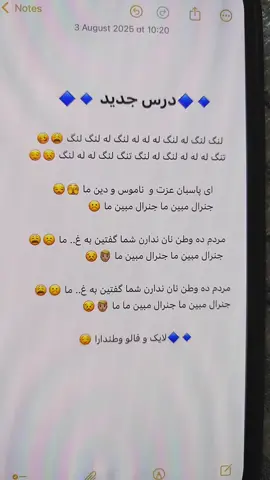 Notes
3 August 2025 at 10:20
🔹🔷درس جدید🔷🔹
لنگ لنگ له لنگ له له له لنگ له لنگ لنگ
تنگ له له له لنگ له لنگ تنگ لنگ له له لنگ
ای پاسبان عزت و ناموس و دین ما
جنرال مبین ما جنرال مبین ما
مردم ده وطن نان ندارن شما گفتین به غ.. ما
جنرال مبین ما جنرال مبین ما
مردم ده وطن نان ندارن شما گفتین به غ.. ما
جنرال مبین ما جنرال مبین ما ما
🔹🔷لایک و فالو وطندارا